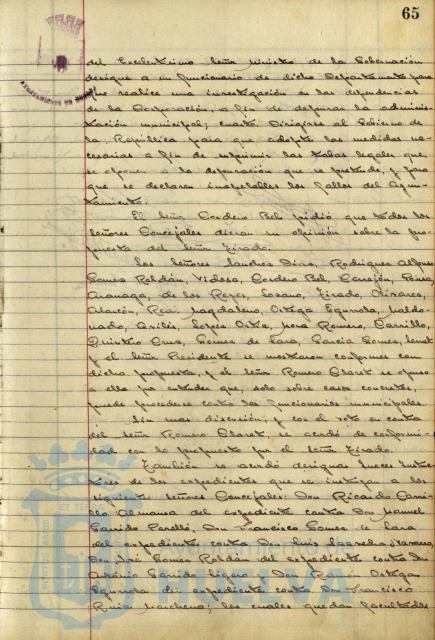 65
del Excelentísimo Señor Ministro de la Gobernación
designe a un funcionario de dicho Departamento para
que realice una investigación en las dependencias
de la Corporación, a fin de depurar la adminis-
tración municipal; cuarto. Dirigirse al Gobierno de
la República para que adopte las medidas ne-
cesarias a fin de suprimir las trabas legales que
se oponen a la depuración que se pretende, y para
que se declaren inapelables los fallos del Ayun-
tamiento.
El Señor Cordero Bel pidió que todos los
Señores Concejales dieran su opinión sobre la pro-
puesta del Señor Tirado.
Los Señores Sanchez Dias, Rodriguez Alfonso
Gomez Roldán, Vidosa, Cordero Bel, Carejón, Ponce,
de los Reyes, Lozano, Tirado, Olivares,
Alarcón, Rea, Magdaleno, Ortega Egurrola, Maldo-
nado, Lopez Ortiz, Mora Romero, Carrillo,
Quintero Cruz, Gomez de Lara, Garcia Gomez,
y el Señor Presidente se mostraron conformes con
dicha propuesta, y el Señor Romero Claret se opuso
a ella por entender que, solo sobre casos concretos,
puede procederse contra los funcionarios municipales.
Sin mas discusión, y con el voto en contra
del Señor Romero Claret, se acordó de conformi-
dad con lo propuesto por el Señor Tirado.
También se acordó designar Jueces Instruc-
tores de los expedientes que se instruyan a los
siguientes Señores Concejales: Don Ricardo Carri-
llo Almansa del expediente contra Don Manuel
Garrido Perelló, Don Francisco Gomez de Lara
del expediente contra Don Luis Saavedra Navarro,
Don José Gomez Roldán del expediente contra Don
Antonio Garrido Ligero y Don Ramón Ortega
Egurrola del expediente contra Don Francisco
Ruiz Marchena; los cuales quedan facultados